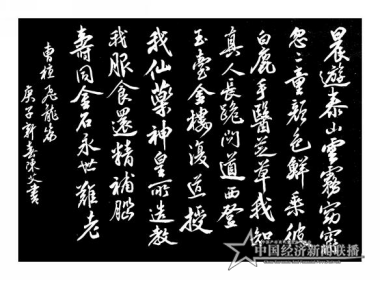 晨遊泰山雲霧窈窕
忽二童顏色鮮乘彼
白鹿手醫芝草我知
真人長跪問道西登
玉臺金樓復道授
我仙藥神皇所造教
我服食還精補腦
壽同金石永世難老
曹植飛龍篇
庚子新春陳文書
中国经济新闻联播